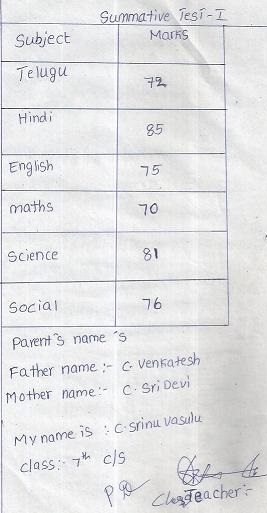 Summative Test-I
Subject Marks
Telugu 72
Hindi 85
English 75
maths 70
Science 81
Social 76
Parent's name's
Father name :- C. Venkatesh
Mother name:- C. Sri Devi
My name is : C. Srinu vasulu
class:- 7th c/s
Teacher:-